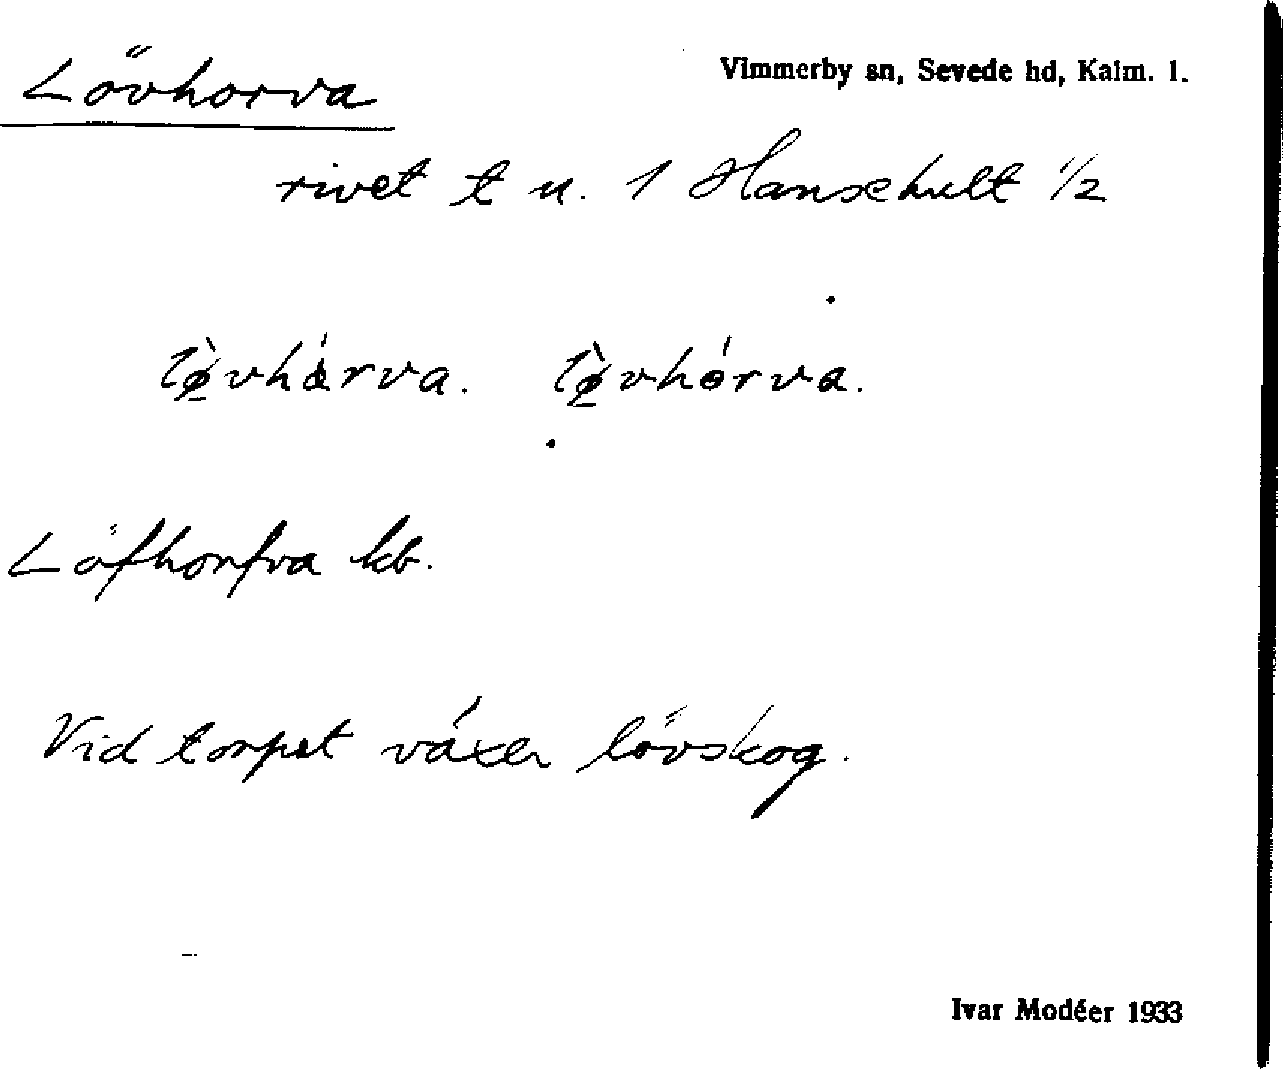 Lövhorva
Vimmerby sn, Sevede hd, Kalm. l.
rivet t u. 1 Hansehult 1/2
lø̀vhárva. lø̀vhórva.
Löfhorfva kb.
Vid torpet växer lövskog.
Ivar Modéer 1933